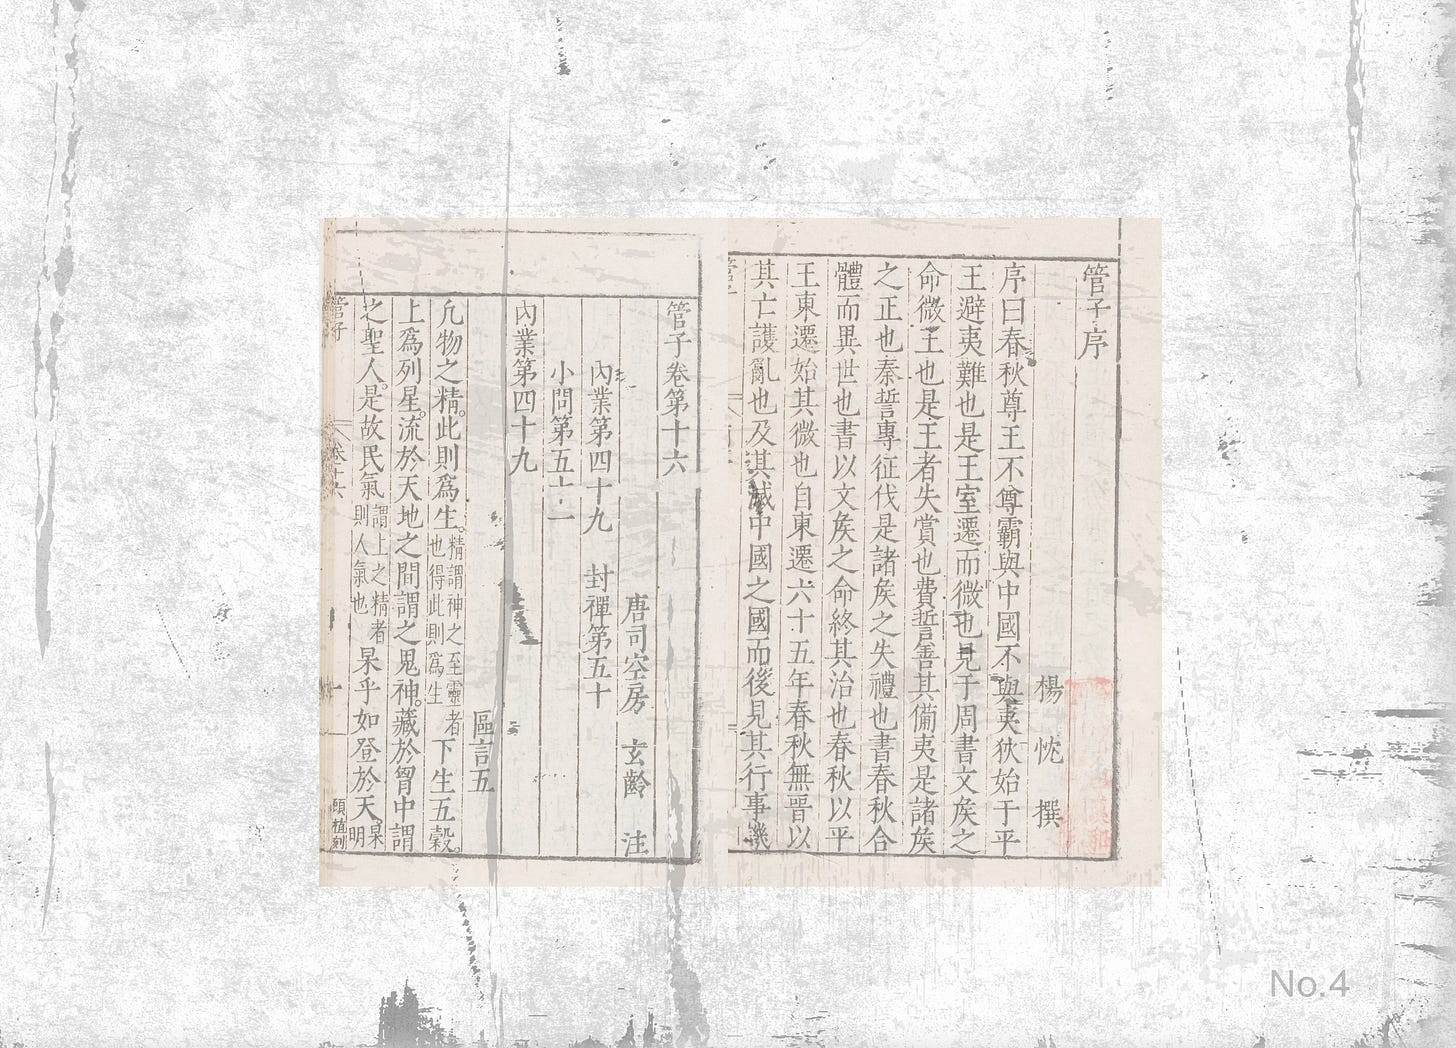 管子序
楊 忱 撰
序曰春秋尊王不尊霸與中國不與夷狄始于平
王避夷難也是王室遷而微也見于周書文矦之
命微王也是王者失賞也費誓善其備夷是諸矦
之正也秦誓專征伐是諸矦之失禮也書春秋合
體而異世也書以文矦之命終其治也春秋以平
王東遷始其微也自東遷六十五年春秋無晉以
其亡護亂也及其滅中國之國而後見其行事譏
管子卷第十六
唐司空房 玄齡 注
內業第四十九 封禪第五十
小問第五十一
內業第四十九
區言五
凡物之精。此則爲生。精謂神之至靈者也得此則爲生下生五穀。
上爲列星。流於天地之間謂之鬼神。藏於胷中謂
之聖人。是故民氣謂上之精者則人氣也杲乎如登於天。杲明
管子 卷十六
No.4